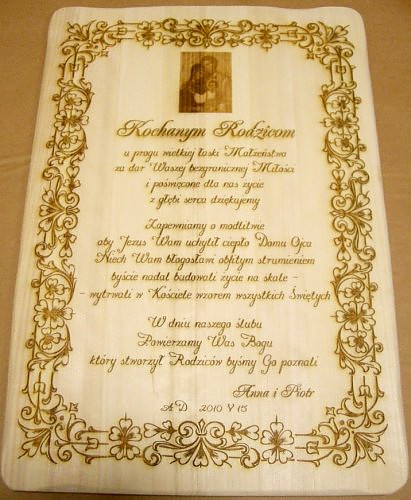 Kochanym Rodzicom
u progu wielkiej łaski Małżeństwa
za dar Waszej bezgranicznej Miłości
i poświęcone dla nas życie
z głębi serca dziękujemy
Zapewniamy o modlitwie
aby Jezus Wam uchylił ciepło Domu Ojca
Niech Wam błogosławi obfitym strumieniem
byście nadal budowali życie na skale -
- wytrwali w Kościele wzorem wszystkich Świętych
W dniu naszego ślubu
Powierzamy Was Bogu
który stworzył Rodziców byśmy Go poznali
Anna i Piotr
A D 2010 V 15